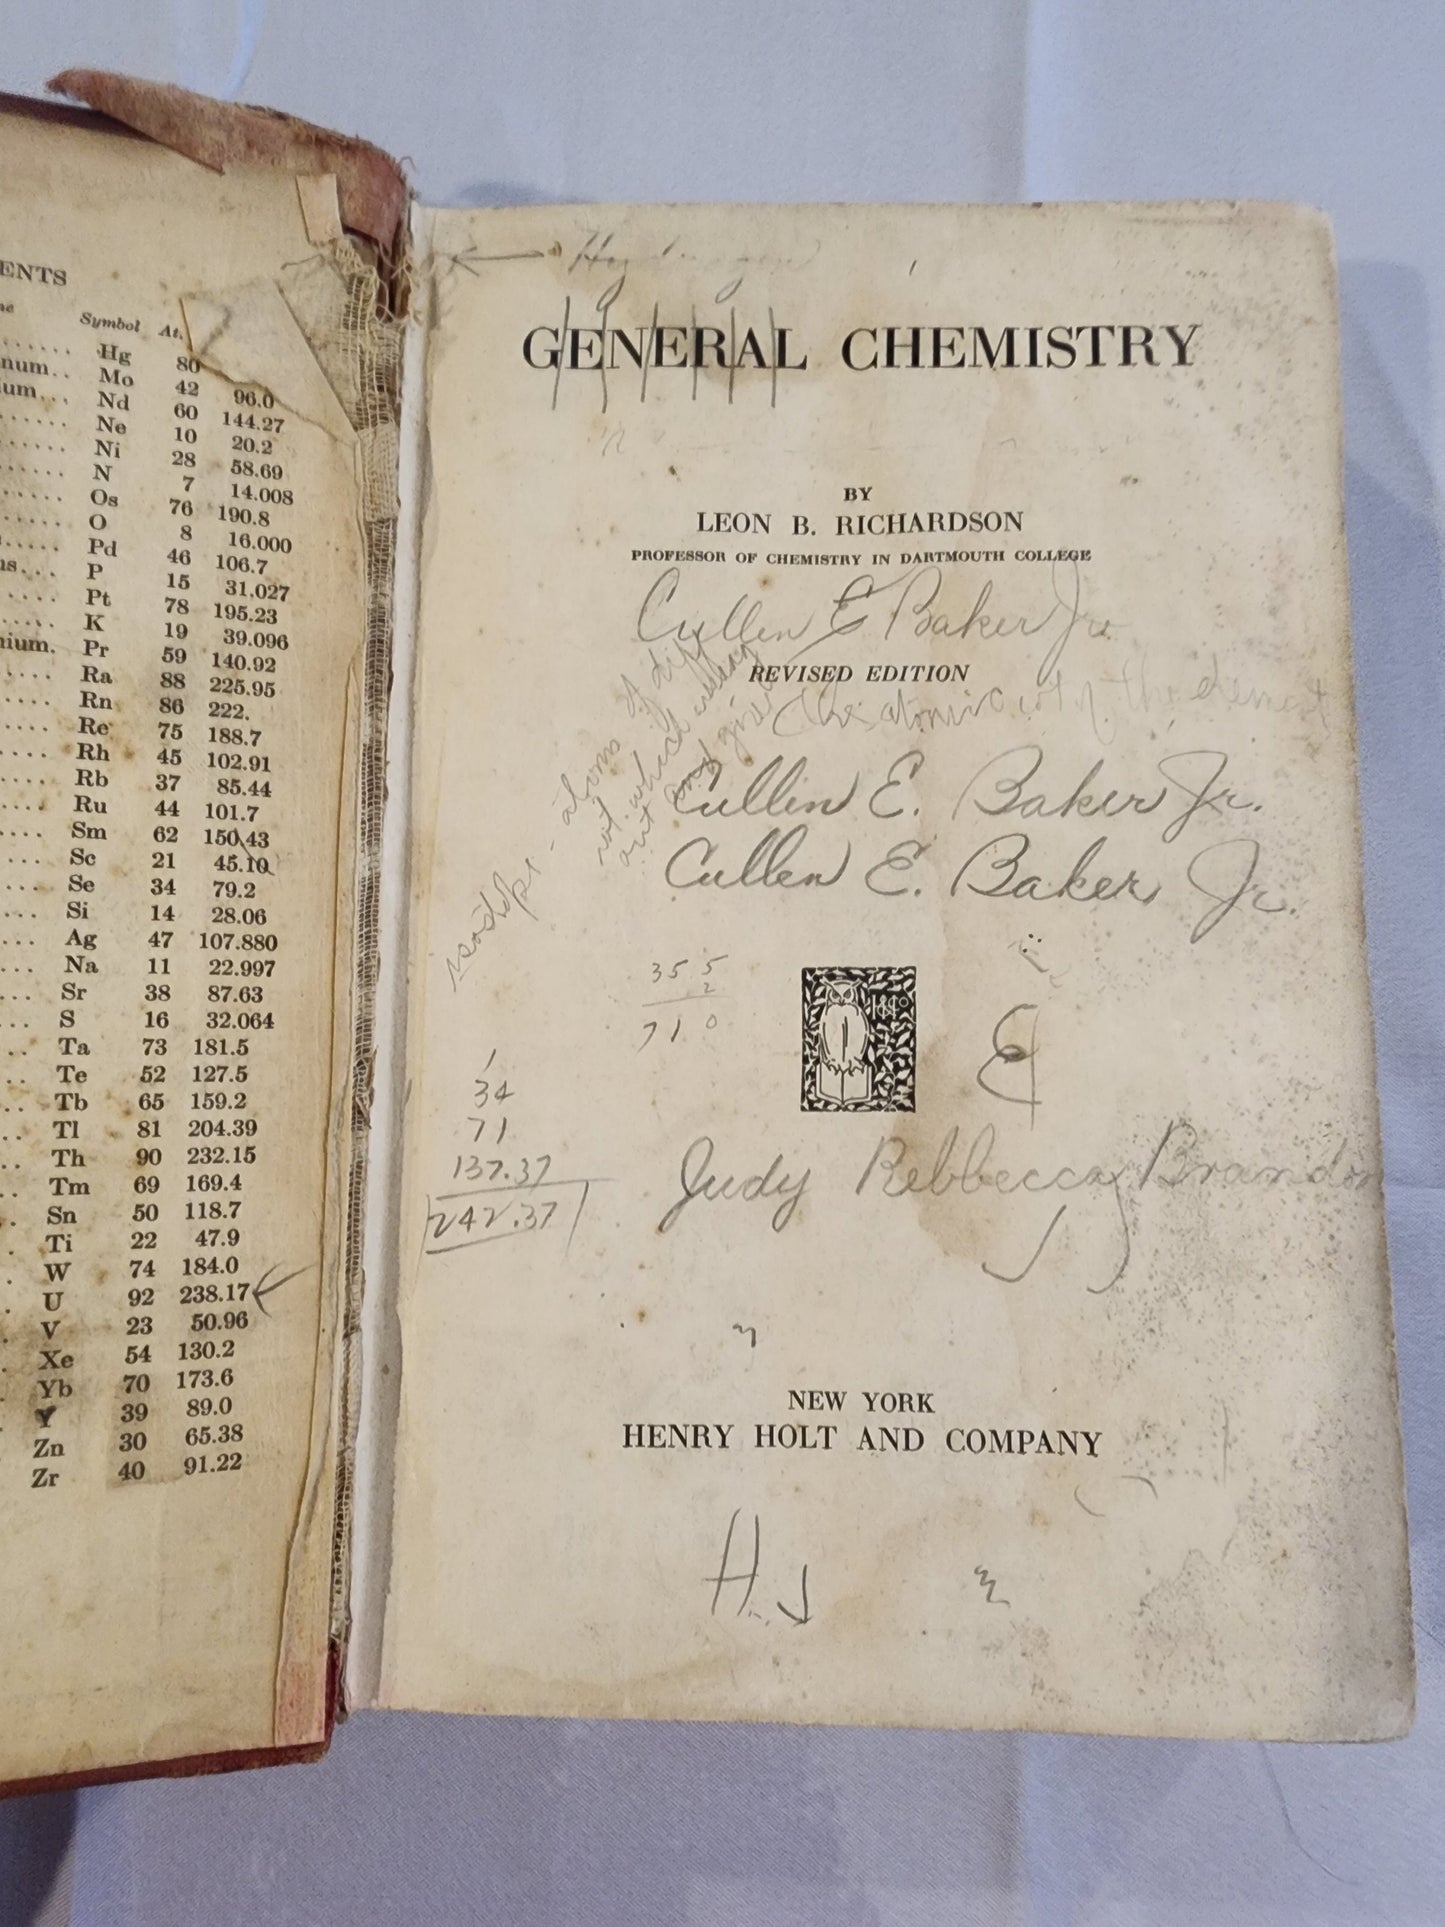 ENTS
Symbol At.
Hg 80
num.. Mo 42 96.0
ium... Nd 60 144.27
Ne 10 20.2
Ni 28 58.69
N 7 14.008
Os 76 190.8
O 8 16.000
Pd 46 106.7
P 15 31.027
Pt 78 195.23
K 19 39.096
nium. Pr 59 140.92
Ra 88 225.95
Rn 86 222.
Re 75 188.7
Rh 45 102.91
Rb 37 85.44
Ru 44 101.7
Sm 62 150.43
Sc 21 45.10
Se 34 79.2
Si 14 28.06
Ag 47 107.880
Na 11 22.997
Sr 38 87.63
S 16 32.064
Ta 73 181.5
Te 52 127.5
Tb 65 159.2
Tl 81 204.39
Th 90 232.15
Tm 69 169.4
Sn 50 118.7
Ti 22 47.9
W 74 184.0
U 92 238.17
V 23 50.96
Xe 54 130.2
Yb 70 173.6
Y 39 89.0
Zn 30 65.38
Zr 40 91.22
GENERAL CHEMISTRY
BY
LEON B. RICHARDSON
PROFESSOR OF CHEMISTRY IN DARTMOUTH COLLEGE
Cullen E Baker Jr.
REVISED EDITION
The atomic wt of the element
Cullen E. Baker Jr.
Cullen E. Baker Jr.
isotope - atoms of
wt. which
out and
35 5
2
71 0
1880
34
71
137.37
242.37
E
Judy Rebbecca Brandon
NEW YORK
HENRY HOLT AND COMPANY
H